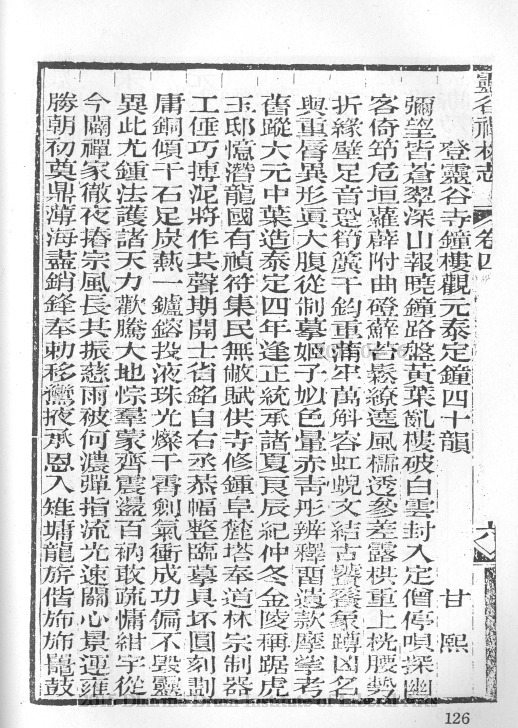 靈谷禪林志 卷四 六
登靈谷寺鐘樓觀元泰定鐘四十韻 甘熙
彌望皆蒼翠深山報曉鐘路盤黃葉亂樓破白雲封入定僧停唄探幽
客倚筇危垣蘿薜附曲磴蘚苔鬆繚遶風櫺透參差露栱重上桄腰勢
折緣壁足音跫筍簴千鈞重蒲牢萬斛容虹蜺文結古饕餮象蹲凶名
與重脣異形真大腹從制摹姬子姒色暈赤青彤辨釋酉遺款摩挲考
舊蹤大元中葉造泰定四年逢正統承諸夏良辰紀仲冬金陵稱踞虎
玉邸憶潛龍國有禎符集民無敝賦供寺修鍾阜麓塔奉道林宗制器
工倕巧摶泥將作共聲期開士省銘自右丞恭幅整臨摹具坏圓刻劃
庸銅傾千石足炭爇一鑪鎔投液珠光燦干霄劍氣衝成功偏不毀靈
異此尤鍾法護諸天力歡騰大地悰羣蒙齊震盪百衲敢疏慵紺宇從
今闢禪家徹夜摏宗風長共振慈雨被何濃彈指流光速關心景運雍
勝朝初奠鼎薄海盡銷鋒奉勅移巒掖承恩入雉墉龍旂偕斾斾鼉鼓
126